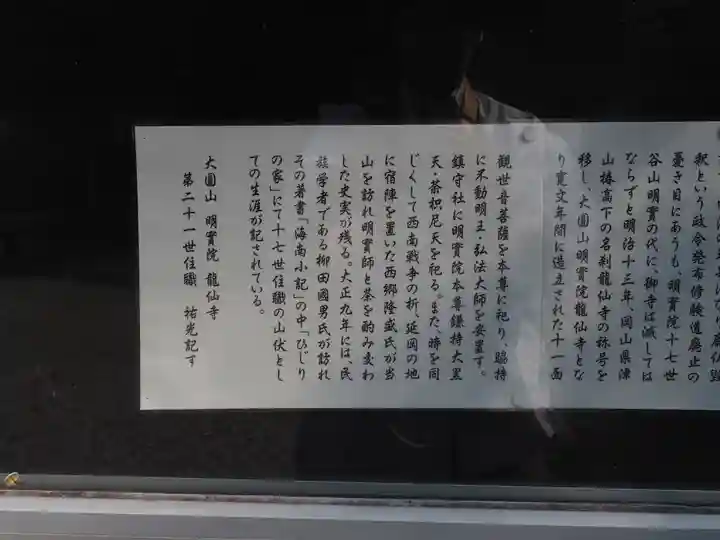 釈という政令発布修験道廃止の
憂き目にあうも、明實院十七世
谷山明實の代に、御寺は滅しては
ならずと明治十三年、岡山県津
山椿高下の名刹龍仙寺の称号を
移し、大圓山明實院龍仙寺とな
り寛文年間に造立された十一面
観世音菩薩を本尊に祀り、脇持
に不動明王・弘法大師を安置す。
鎮守社に明實院本尊鎌持大黒
天・荼枳尼天を祀る。また、時を同
じくして西南戦争の折、延岡の地
に宿陣を置いた西郷隆盛氏が当
山を訪れ明實師と茶を酌み変わ
した史実が残る。大正九年には、民
族学者である柳田國男氏が訪れ
その著書「海南小記」の中「ひじり
の家」にて十七世住職の山伏とし
ての生涯が記されている。
大圓山　明實院　龍仙寺
第二十一世住職　祐光記す